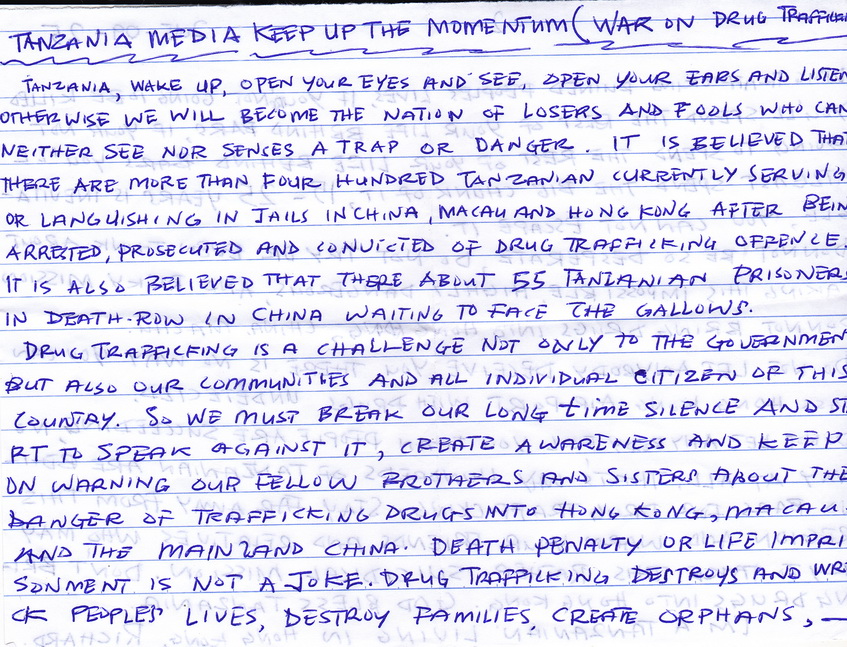 TANZANIA MEDIA KEEP UP THE MOMENTUM ( WAR ON DRUG TRAFFICKIN
TANZANIA, WAKE UP, OPEN YOUR EYES AND SEE, OPEN YOUR EARS AND LISTEN
OTHERWISE WE WILL BECOME THE NATION OF LOSERS AND FOOLS WHO CAN
NEITHER SEE NOR SENCES A TRAP OR DANGER. IT IS BELIEVED THAT
THERE ARE MORE THAN FOUR HUNDRED TANZANIAN CURRENTLY SERVING
OR LANGUISHING IN JAILS IN CHINA, MACAU AND HONG KONG AFTER BEIN
ARRESTED, PROSECUTED AND CONVICTED OF DRUG TRAFFICKING OFFENCE.
IT IS ALSO BELIEVED THAT THERE ABOUT 55 TANZANIAN PRISONERS
IN DEATH-ROW IN CHINA WAITING TO FACE THE GALLOWS.
DRUG TRAFFICKING IS A CHALLENGE NOT ONLY TO THE GOVERNMEN
BUT ALSO OUR COMMUNITIES AND ALL INDIVIDUAL CITIZEN OF THIS
COUNTRY. SO WE MUST BREAK OUR LONG time SILENCE AND ST
RT TO SPEAK AGAINST IT, CREATE AWARENESS AND KEEP
ON WARNING OUR FELLOW BROTHERS AND SISTERS ABOUT THE
DANGER OF TRAFFICKING DRUGS INTO HONG KONG, MACAU
AND THE MAINLAND CHINA. DEATH PENALTY OR LIFE IMPRI
SONMENT IS NOT A JOKE. DRUG TRAFFICKING DESTROYS AND WR
CK PEOPLES' LIVES, DESTROY FAMILIES, CREATE ORPHANS, —